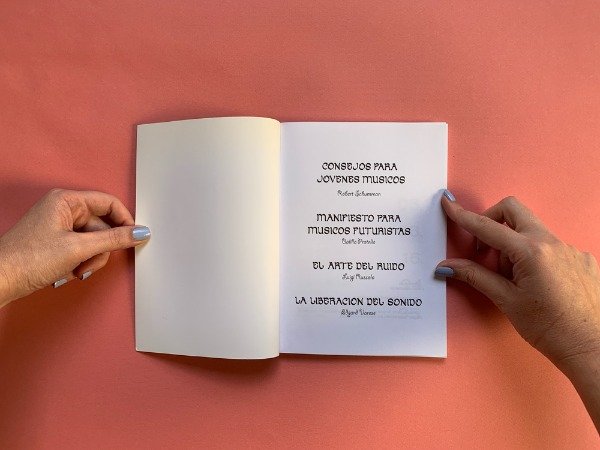 CONSEJOS PARA
JOVENES MUSICOS
Robert Schumman
MANIFIESTO PARA
MUSICOS FUTURISTAS
Balilla Pratella
EL ARTE DEL RUIDO
Luigi Russolo
LA LIBERACION DEL SONIDO
Edgard Varese